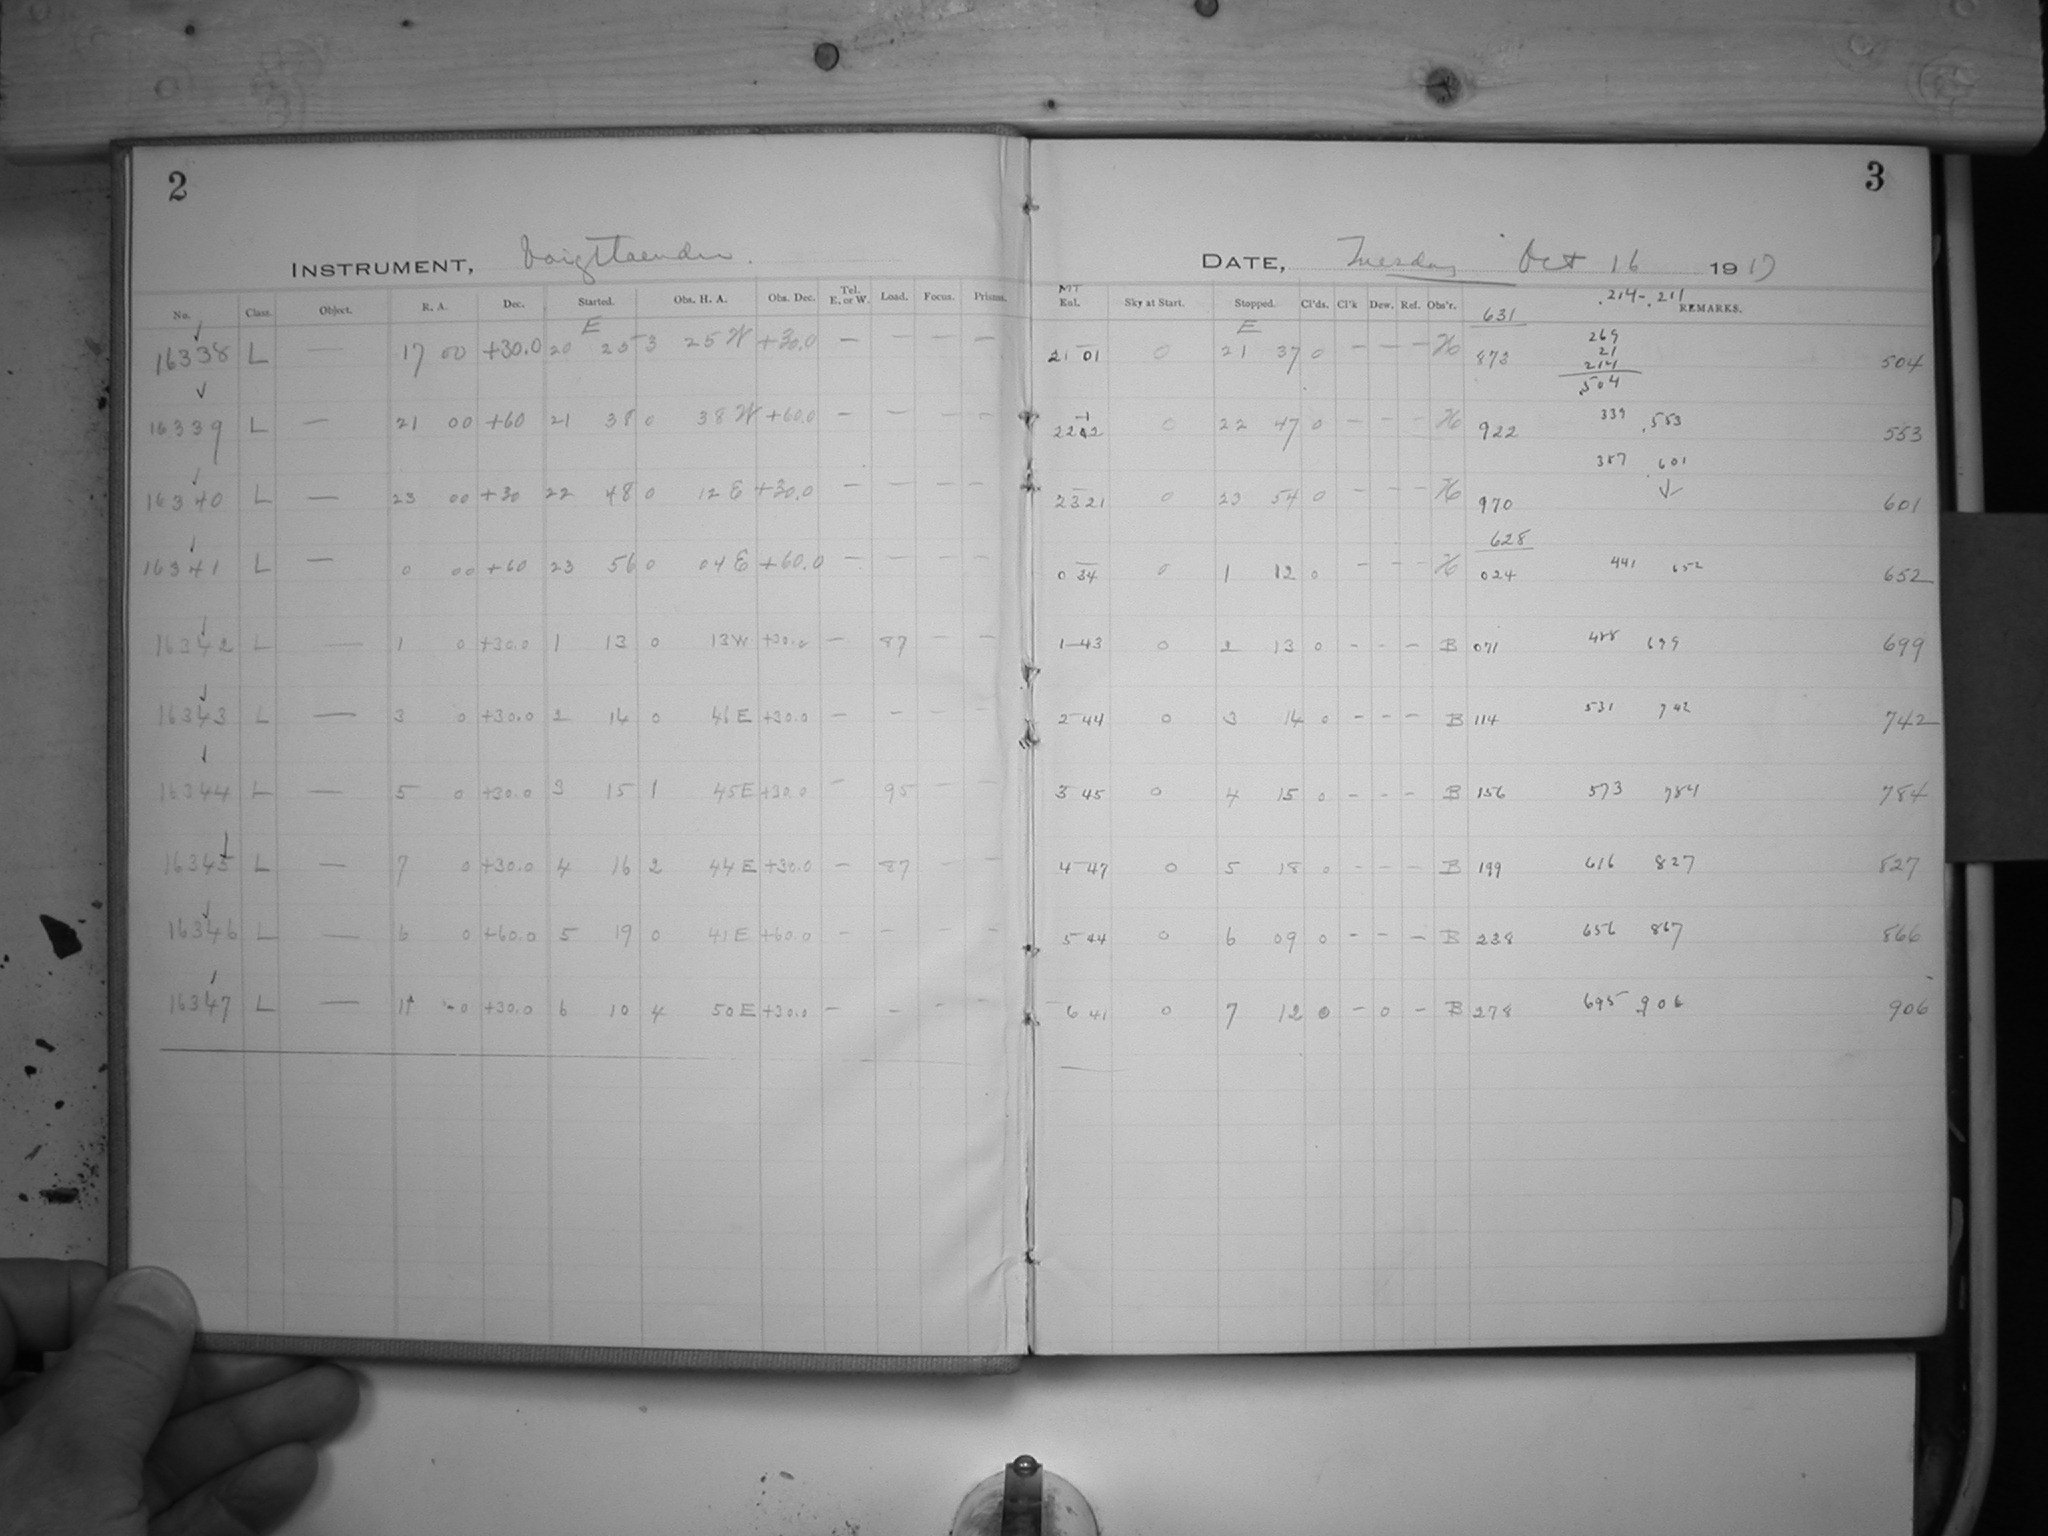 2
INSTRUMENT, Voigtlaender.
No. Class. Object. R. A. Dec. Started. Obs. H. A. Obs. Dec. Tel. E. or W. Load. Focus. Prisms.
E
16338 L — 17 00 +30.0 20 25 3 25 W +30.0 — — — —
16339 L — 21 00 +60 21 38 0 38 W +60.0 — — — —
16340 L — 23 00 +30 22 48 0 12 E +30.0 — — — —
16341 L — 0 00 +60 23 56 0 04 E +60.0 — — — —
16342 L — 1 0 +30.0 1 13 0 13 W +30.0 — 87 — —
16343 L — 3 0 +30.0 2 14 0 46 E +30.0 — — — —
16344 L — 5 0 +30.0 3 15 1 45 E +30.0 — 95 — —
16345 L — 7 0 +30.0 4 16 2 44 E +30.0 — 87 — —
16346 L — 6 0 +60.0 5 19 0 41 E +60.0 — — — —
16347 L — 11 0 +30.0 6 10 4 50 E +30.0 — — — —
3
DATE, Tuesday Oct 16 1917
MT
Enl. Sky at Start. Stopped. Cl'ds. Cl'k Dew. Ref. Obs'r. REMARKS.
.214 - .211
631
E
21 01 0 21 37 0 — — — H 873 269 504
21
214
.504
22 12 0 22 47 0 — — — H 922 339 .553 553
23 21 0 23 54 0 — — — H 970 387 601 601
628
0 34 0 1 12 0 — — — H 024 441 652 652
1 43 0 2 13 0 — — — B 071 488 699 699
2 44 0 3 14 0 — — — B 114 531 742 742
3 45 0 4 15 0 — — — B 156 573 784 784
4 47 0 5 18 0 — — — B 199 616 827 827
5 44 0 6 09 0 — — — B 238 656 867 866
6 41 0 7 12 0 — 0 — B 278 695 906 906